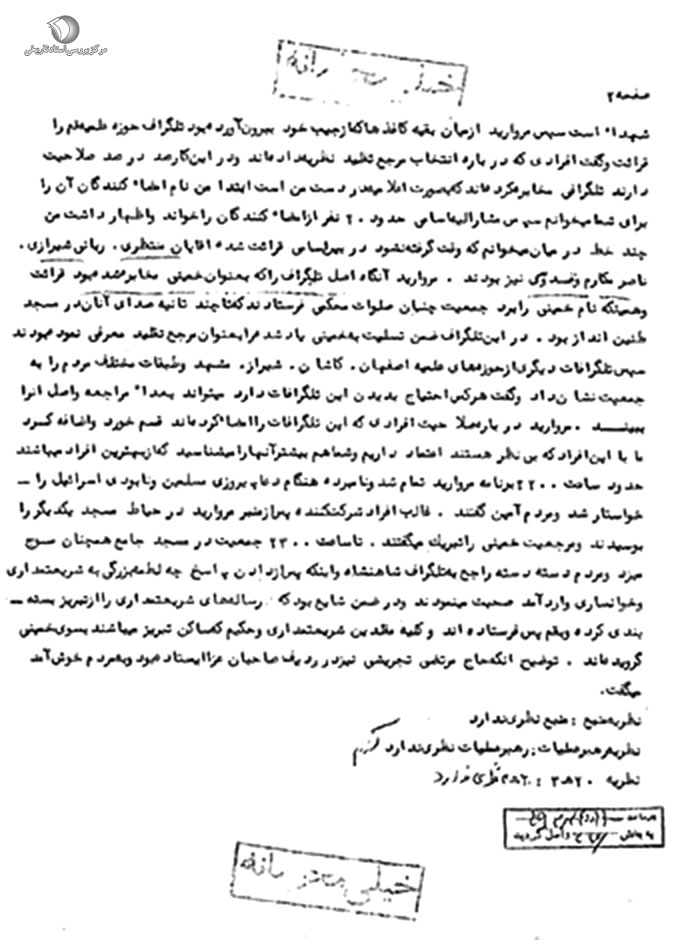 مرکز بررسی اسناد تاریخی
خیلی محرمانه
صفحه ۲
شهداء است سپس مروارید ازمیان بقیه کاغذ هاکه ازجیب خود بیرون آورده بود تلگراف حوزه علمیه قم را
قرائت وگفت افرادی که در باره انتخاب مرجع تقلید نظریه داده اند ودر این کارصد در صد صلاحیت
دارند تلگرافی مخابره کرده اند که بصورت اعلامیه در دست من است ابتدا من نام امضاء کنندگان آن را
برای شما میخوانم سپس مشارالیه اسامی حدود ۲۰ نفر ازامضاء کنندگان را خواند واظهار داشت من
چند خط در میان میخوانم که وقت گرفته نشود در بین اسامی قرائت شده اقایان منتظری، ربانی شیرازی،
ناصر مکارم نیز بودند . مروارید آنگاه اصل تلگراف راکه بعنوان خمینی مخابره شده بود قرائت
وهمینکه نام خمینی رابرد جمعیت چنان صلوات محکمی فرستادند که تا چند ثانیه صدای آنان در مسجد
طنین انداز بود . در این تلگراف ضمن تسلیت به خمینی یاد شده را بعنوان مرجع تقلید معرفی نموده بودند
سپس تلگرافات دیگری از حوزه های علمیه اصفهان، کاشان، شیراز، مشهد وطبقات مختلف مردم را به
جمعیت نشان داد وگفت هرکس احتیاج بدیدن این تلگرافات دارد میتواند بعداء مراجعه واصل انرا
ببینـــد . مروارید در باره صلاحیت افرادی که این تلگرافات را امضاء کرده اند قسم خورد واضافه کرد
ما با این افراد که بی نظر هستند اعتماد داریم وشما هم بیشتر آنها را میشناسید که از بهترین افراد میباشند
حدود ساعت ۲۲۰۰ برنامه مروارید تمام شد ونامبرده هنگام دعا پیروزی مسلمین ونابودی اسرائیل را ـ
خواستار شد ومردم آمین گفتند . غالب افراد شرکت کننده پس از منبر مروارید در حیاط مسجد یکدیگر را
بوسیدند ومرجعیت خمینی راتبریک میگفتند . تاساعت ۲۳۰۰ جمعیت در مسجد جامع همچنان مــوج
میزد ومردم دسته دسته راجع به تلگراف شاهنشاه واینکه پس از دادن پاسخ چه لطمه بزرگی به شریعتمداری
وخوانساری وارد آمد صحبت مینمودند ودر ضمن شایع بود که رساله های شریعتمداری را از تبریز بسته ـ
بندی کرده وبقم پس فرستاده اند وکلیه مقلدین شریعتمداری وحکیم که ساکن تبریز میباشند بسوی خمینی
گرویده اند . توضیح انکه حاج مرتضی تجریشی نیز در ردیف صاحبان عزا ایستاده بود وبه مردم خوش آمد
میگفت.
نظریه منبع : منبع نظری ندارد
نظریه رهبر عملیات : رهبر عملیات نظری ندارد
نظریه ۲۰ ه ۳ : ۲۰ ه ۳ نظری ندارد
واصل گردید
خیلی محرمانه